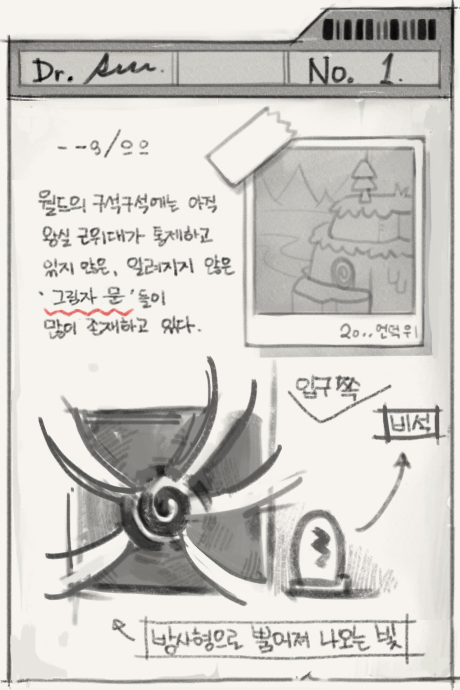 Dr.
No. 1.
--9/00
월드의 구석구석에는 아직
왕실 근위대가 통제하고
있지 않은, 알려지지 않은
'그림자 문'들이
많이 존재하고 있다.
20..언덕위
입구쪽
비석
방사형으로 뿜어져 나오는 빛